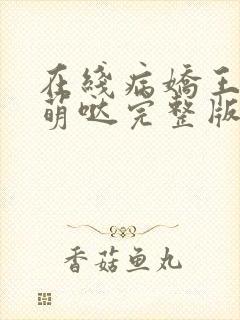 在线病娇王
萌哒完整版
香菇鱼丸